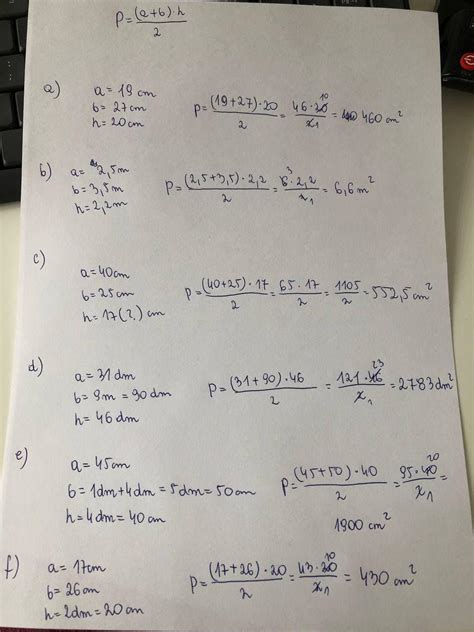 P = (a+b)·h / 2
a) a = 19 cm
b = 27 cm
h = 20 cm
P = (19+27)·20 / 2 = 46·20 10 / 2 1 = 460 cm²
b) a = 2,5m
b = 3,5m
h = 2,2m
P = (2,5+3,5)·2,2 / 2 = 6 3·2,2 / 2 1 = 6,6 m²
c) a = 40cm
b = 25cm
h = 17(?) cm
P = (40+25)·17 / 2 = 65·17 / 2 = 1105 / 2 = 552,5 cm²
d) a = 31 dm
b = 9m = 90dm
h = 46 dm
P = (31+90)·46 / 2 = 121·46 23 / 2 1 = 2783 dm²
e) a = 45cm
b = 1dm+4dm = 5dm = 50cm
h = 4dm = 40cm
P = (45+50)·40 / 2 = 95·40 20 / 2 1 =
1900 cm²
f) a = 17cm
b = 26cm
h = 2dm = 20cm
P = (17+26)·20 / 2 = 43·20 10 / 2 1 = 430 cm²